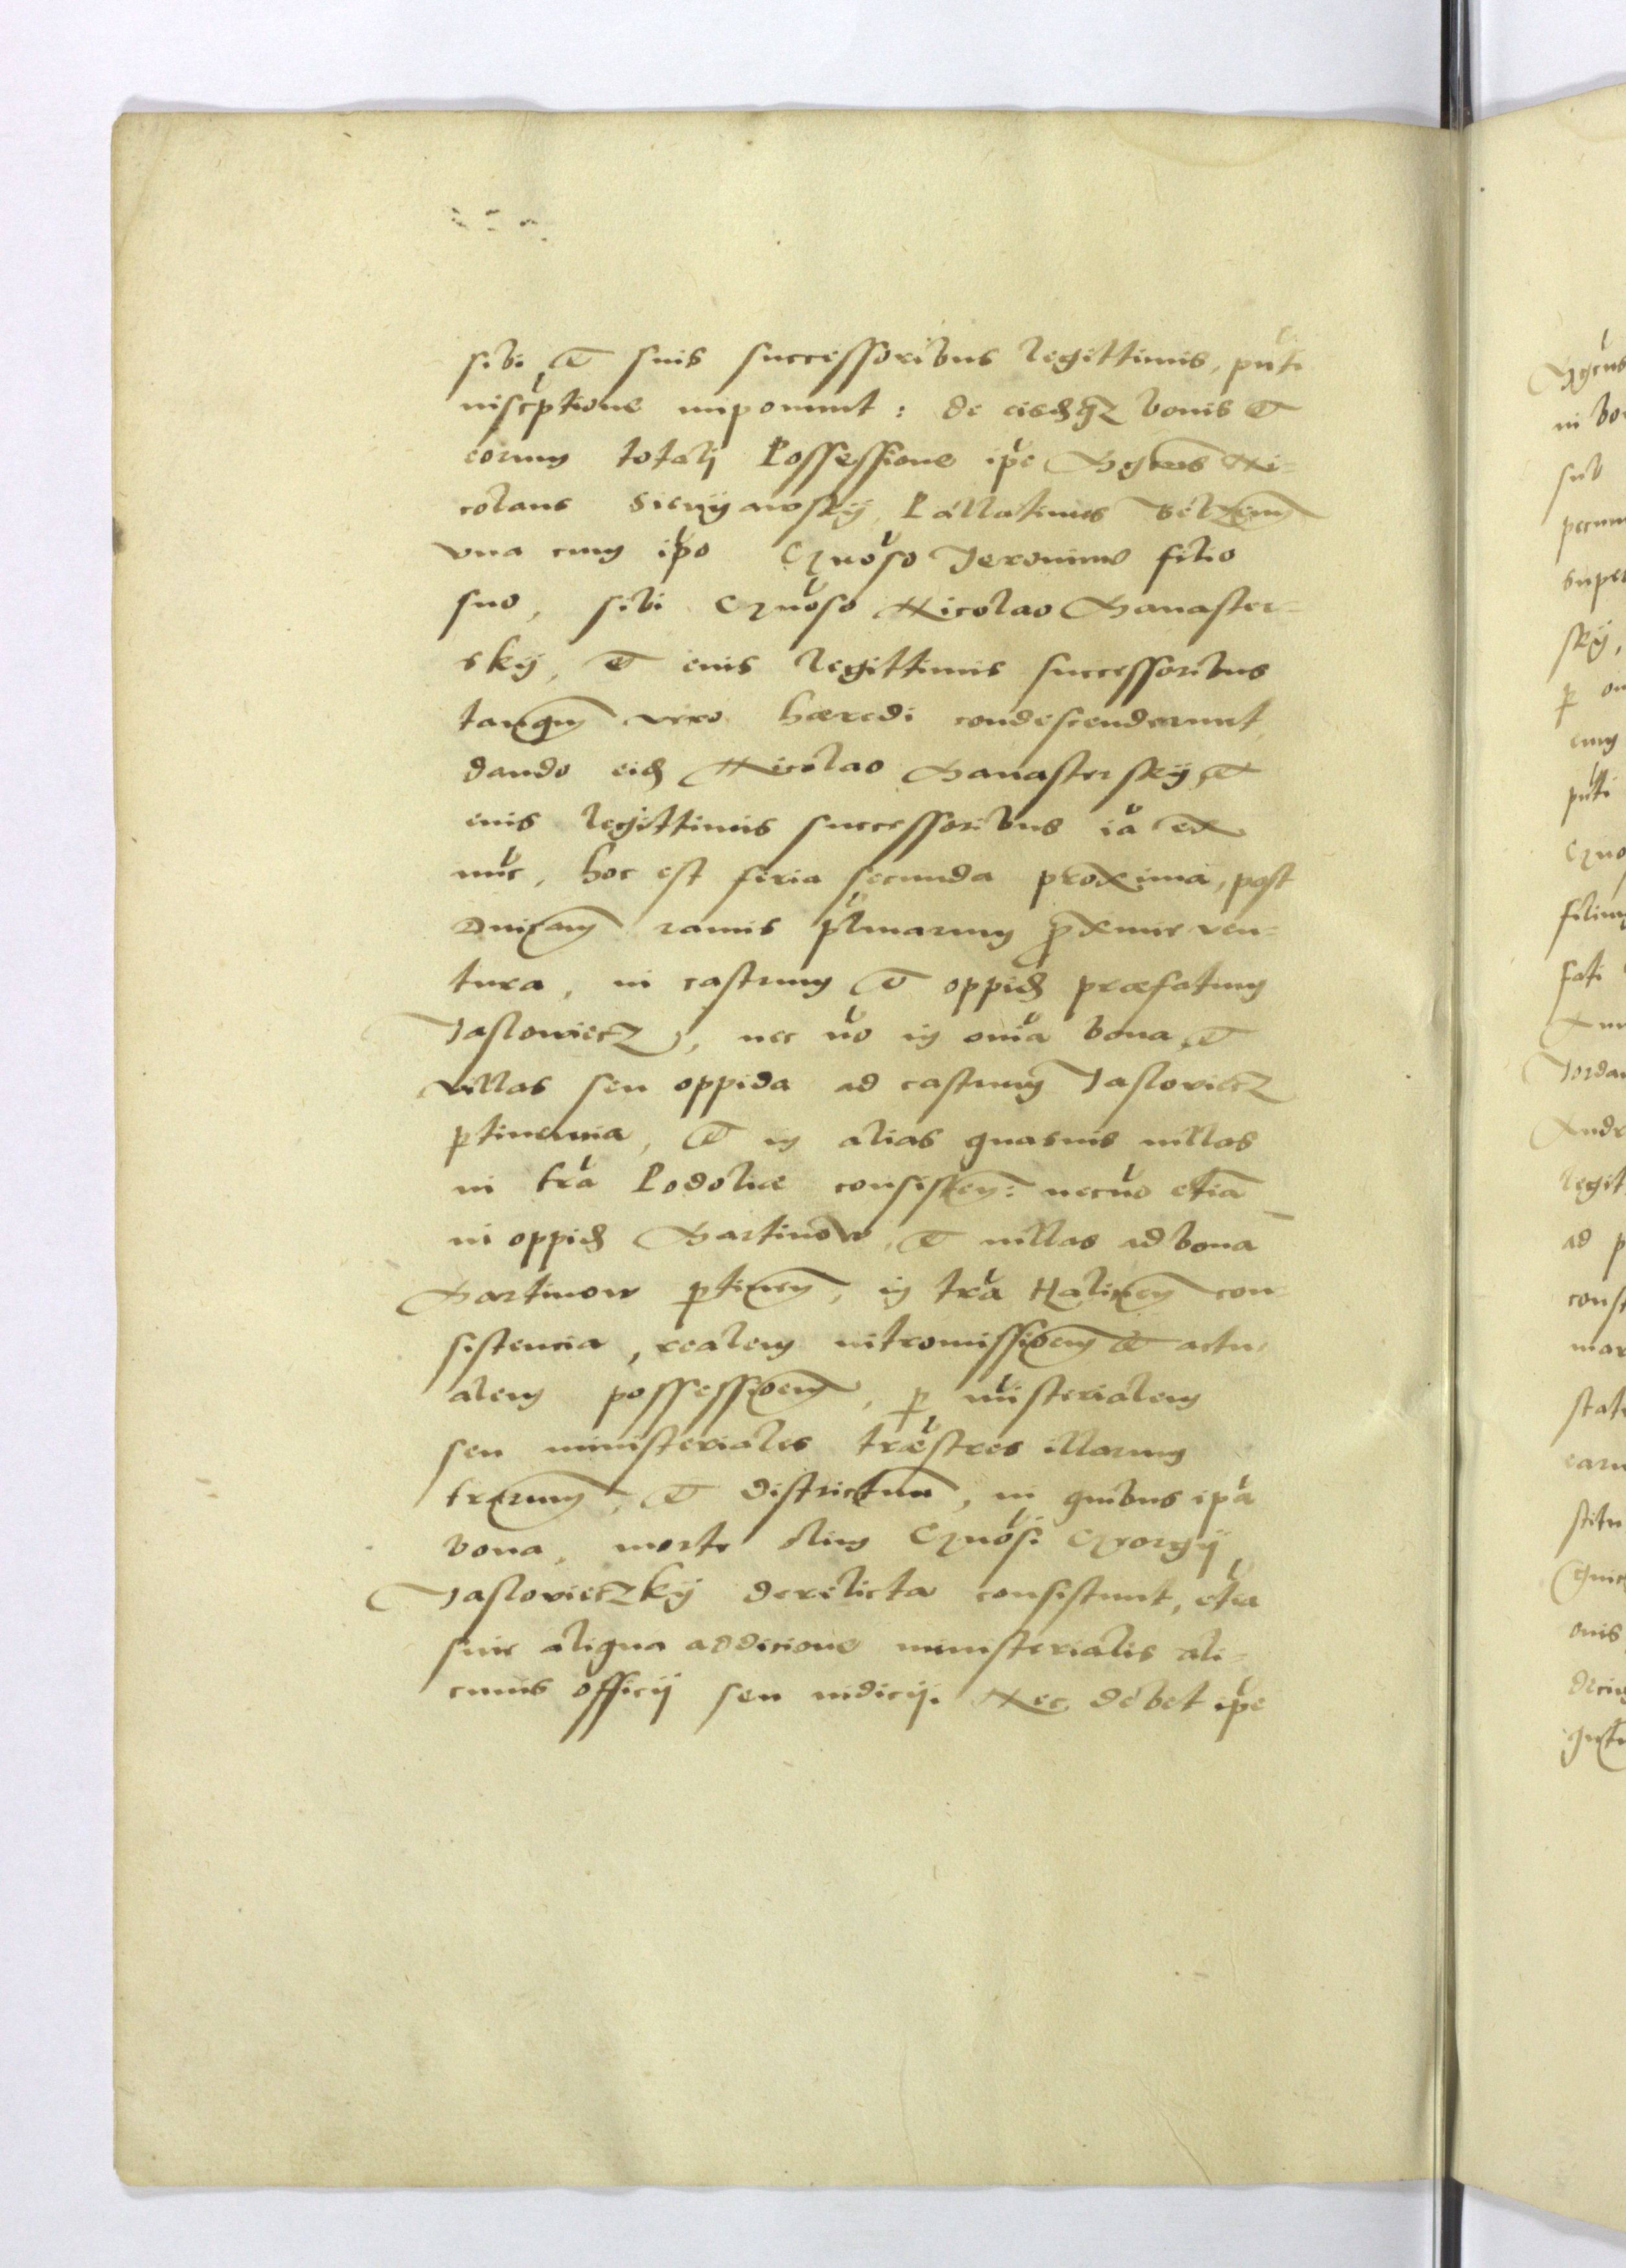 sibi, et suis successoribus legittimis, pñti
inscptione imponunt: de eisdq3 bonis et
eorum totalj Possessione ipe Mgcus Ni=
colaus Sienyawsky, Pallatinus Belzem
vna cum ipo Gnoso Jeronimo filio
suo, sibi Gnoso Nicolao Banaster=
skÿ, et eius legittimis successoribus
tanqm vero hæredi condescenderunt,
dando eid Nicolao Banasterskÿ et
eius legittimis successoribus ia ex
nuc, hoc est feria secunda proxima, post
Dnicam ramis plmarum proxime ven=
tura, in castrum et oppid præfatum
Jaslowiecz, nec no in omia bona et
villas seu oppida ad castrum Jaslowiecz
ptinencia, et in alias quasuis villas
in tra Podoliæ consisten: necno etia
in oppid Martinow, et villas ad bona
Martinow ptinen, in tra Halicen con=
sistencia, realem intromissioem et actu=
alem possessioem, p misterialem
seu ministeriales træstres illarum
trarum, et districtuu, in quibus ipa
bona, morte olim Gnosi Georgij
Jaslowieczkÿ derelicta consistunt, etia
sine aliqua addicione ministerialis ali=
cuius officij seu iudicij. Nec debet ipe